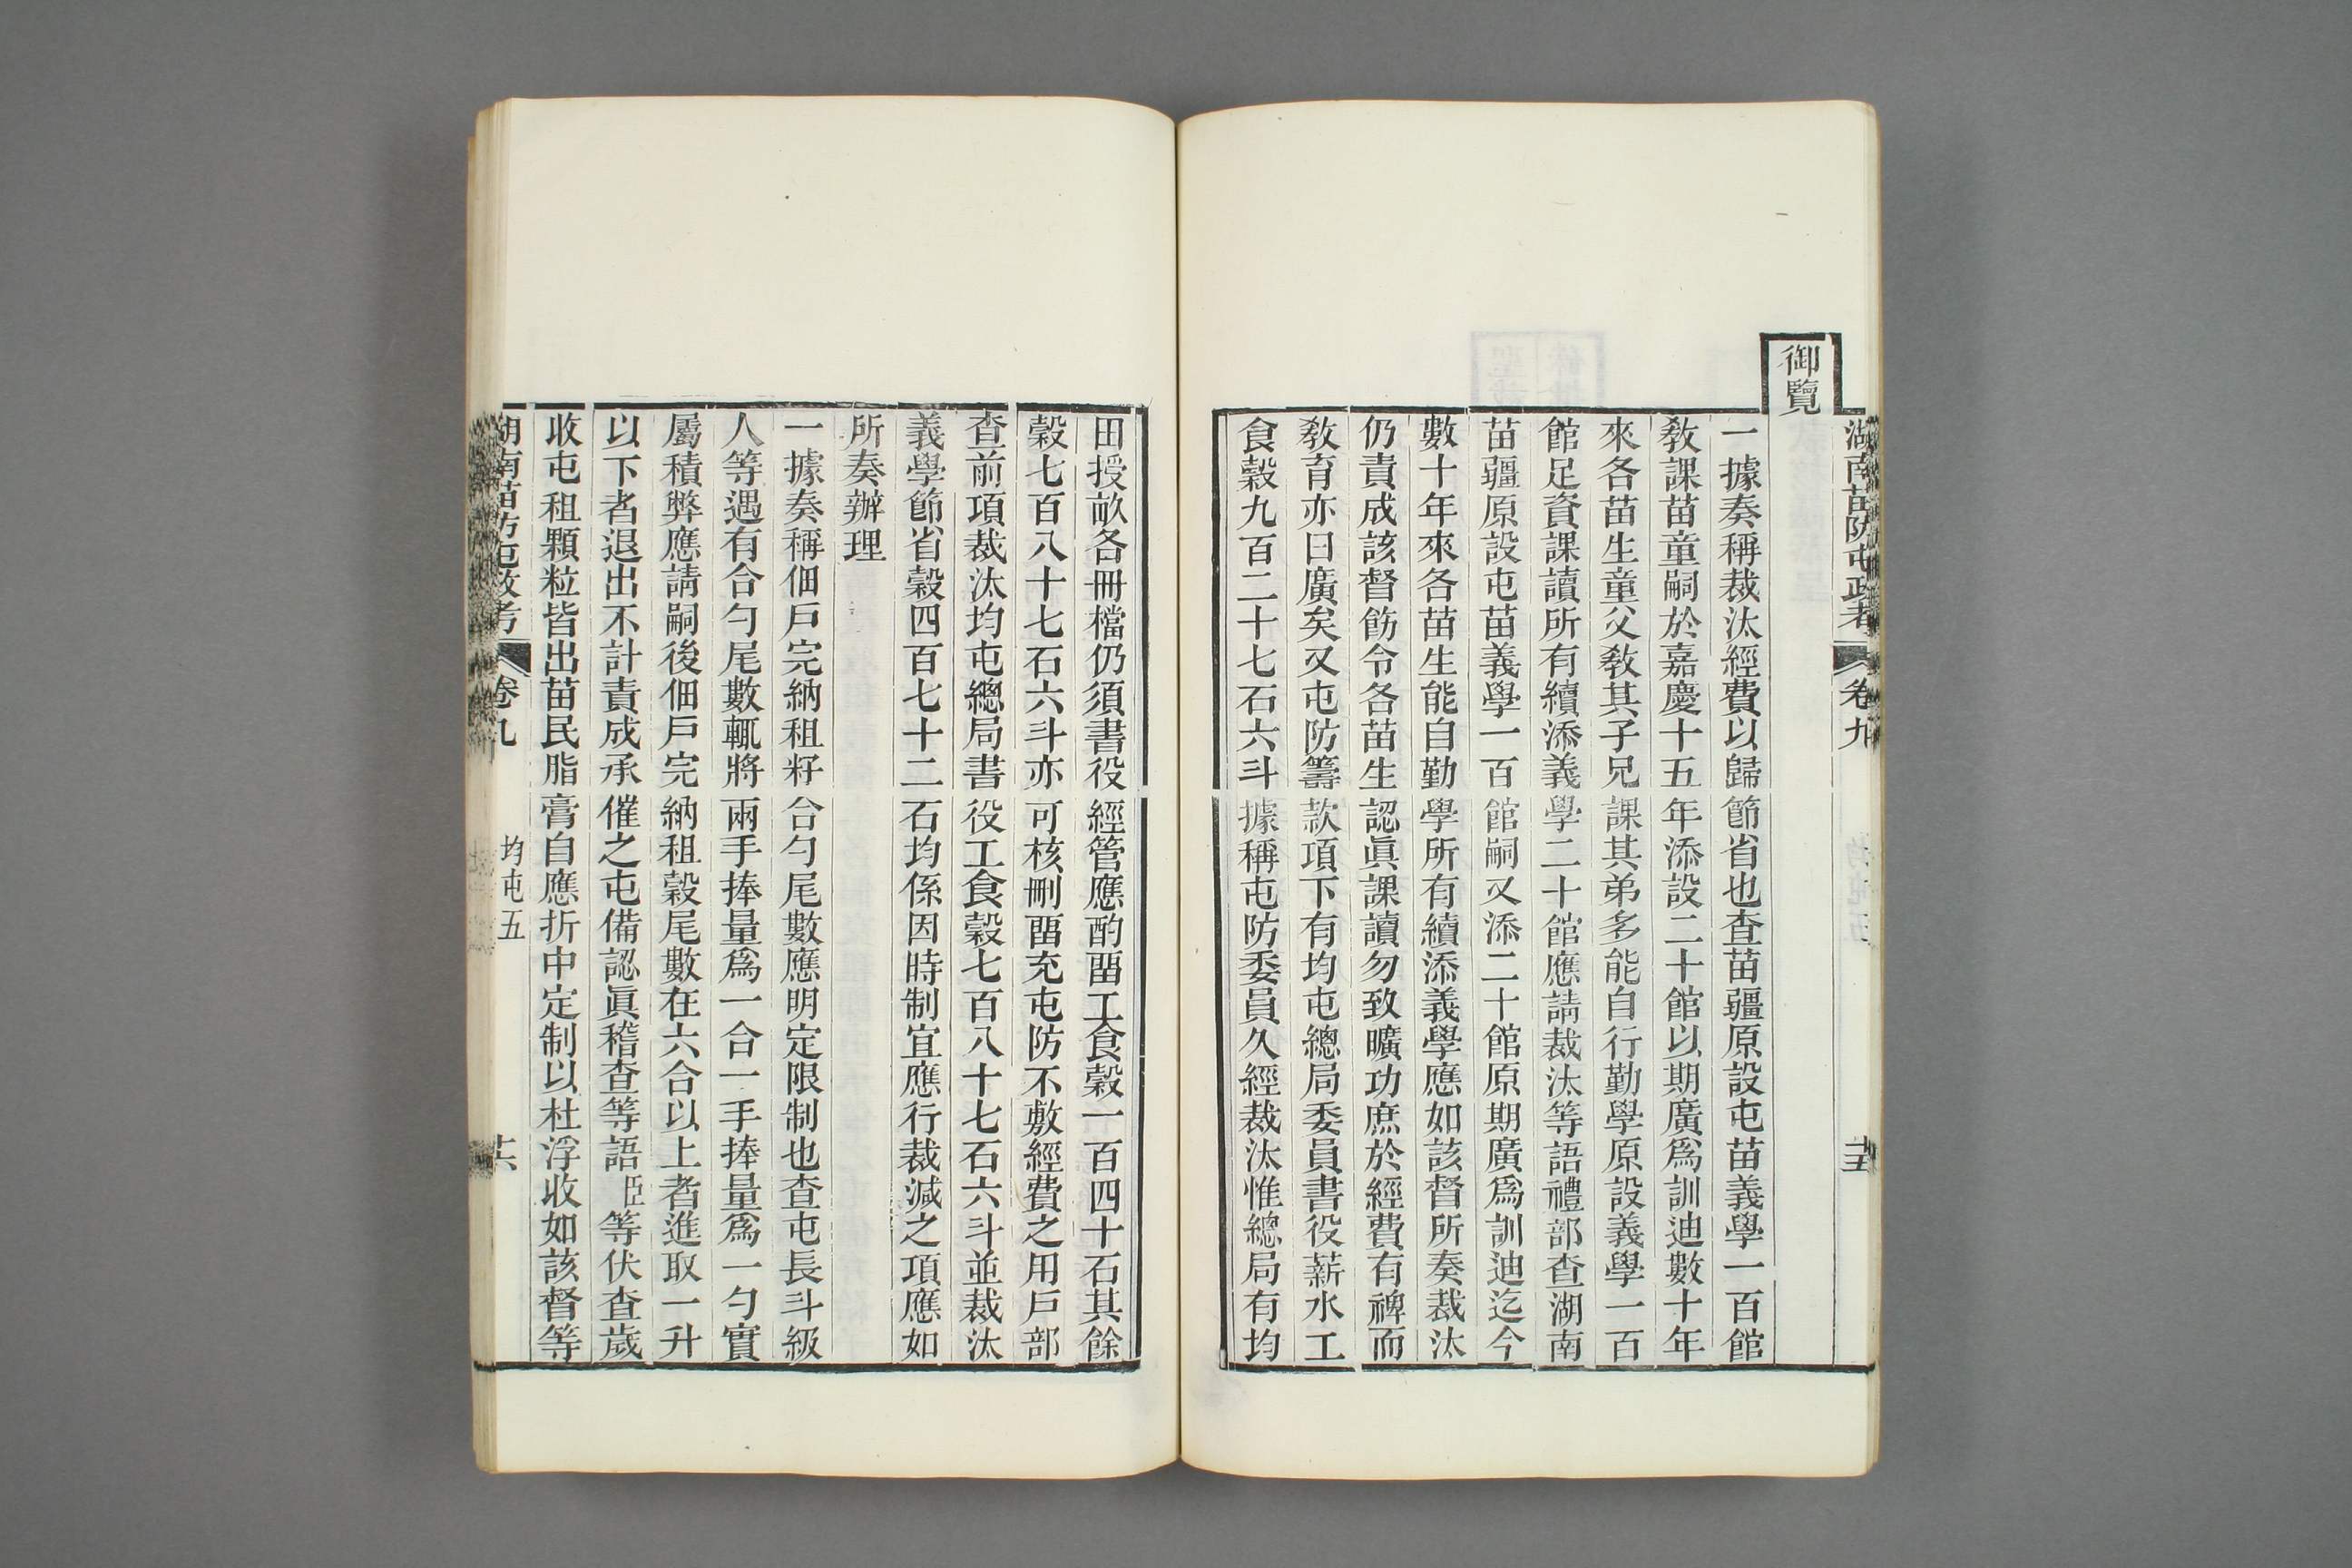 湖南苗防屯政考
卷九
十五
御覽
一據奏稱裁汰經費以歸節省也查苗疆原設屯苗義學一百館
敎課苗童嗣於嘉慶十五年添設二十館以期廣爲訓迪數十年
來各苗生童父敎其子兄課其弟多能自行勤學原設義學一百
館足資課讀所有續添義學二十館應請裁汰等語禮部查湖南
苗疆原設屯苗義學一百館嗣又添二十館原期廣爲訓迪迄今
數十年來各苗生能自勤學所有續添義學應如該督所奏裁汰
仍責成該督飭令各苗生認眞課讀勿致曠功庶於經費有裨而
敎育亦日廣矣又屯防籌款項下有均屯總局委員書役薪水工
食穀九百二十七石六斗據稱屯防委員久經裁汰惟總局有均
田授畝各冊檔仍須書役經管應酌畱工食穀一百四十石其餘
穀七百八十七石六斗亦可核刪畱充屯防不敷經費之用戶部
查前項裁汰均屯總局書役工食穀七百八十七石六斗並裁汰
義學節省穀四百七十二石均係因時制宜應行裁減之項應如
所奏辦理
一據奏稱佃戶完納租籽合勺尾數應明定限制也查屯長斗級
人等遇有合勺尾數輒將兩手捧量爲一合一手捧量爲一勺實
屬積弊應請嗣後佃戶完納租穀尾數在六合以上者進取一升
以下者退出不計責成承催之屯備認眞稽查等語臣等伏查歲
收屯租顆粒皆出苗民脂膏自應折中定制以杜浮收如該督等
湖南苗防屯政考
卷九
均屯五
十六